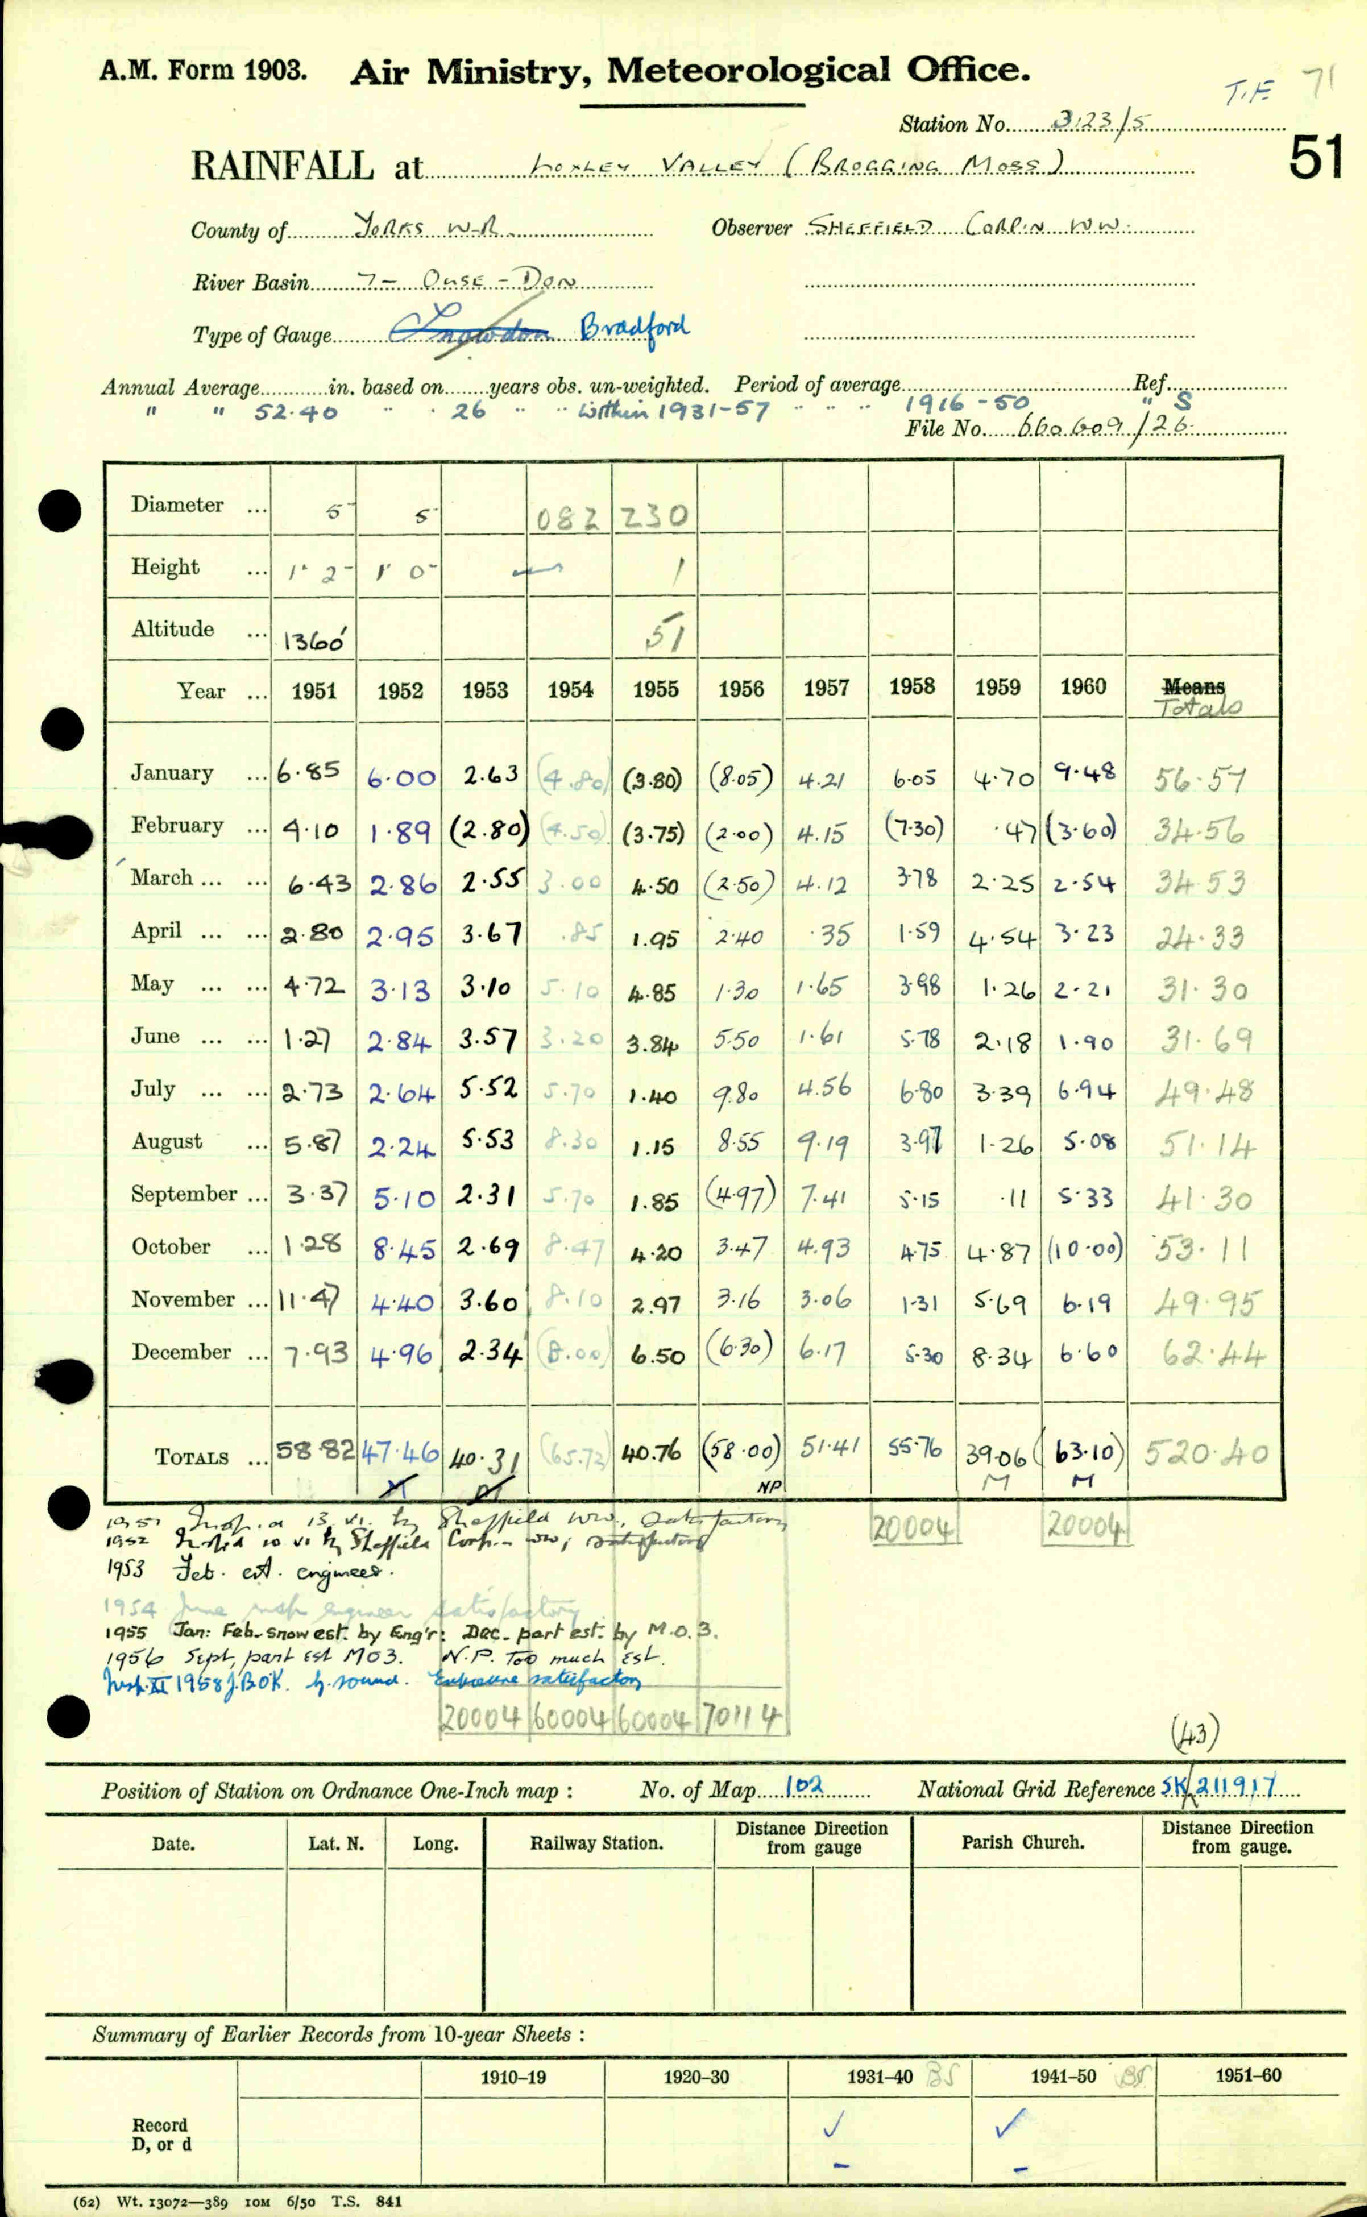 A.M. Form 1903. Air Ministry, Meteorological Office.
T.F. 71
Station No. 3123/5
51
RAINFALL at LOXLEY VALLEY (BROGGING MOSS)
County of YORKS W.R. Observer SHEFFIELD CORP'N WW.
River Basin 7- OUSE - DON
Type of Gauge Snowdon Bradford
Annual Average in. based on years obs. un-weighted. Period of average Ref.
" " 52.40 " " 26 " " within 1931-57 " " " 1916-50 " S
File No. 660609/26
Diameter ... 5 5 082 230
Height ... 1' 2" 1' 0" 1
Altitude ... 1360' 51
Year ... 1951 1952 1953 1954 1955 1956 1957 1958 1959 1960 Means Totals
January ... 6.85 6.00 2.63 (4.80) (3.80) (8.05) 4.21 6.05 4.70 9.48 56.57
February ... 4.10 1.89 (2.80) (4.50) (3.75) (2.00) 4.15 (7.30) .47 (3.60) 34.56
March ... ... 6.43 2.86 2.55 3.00 4.50 (2.50) 4.12 3.78 2.25 2.54 34.53
April ... ... 2.80 2.95 3.67 .85 1.95 2.40 .35 1.59 4.54 3.23 24.33
May ... ... 4.72 3.13 3.10 5.10 4.85 1.30 1.65 3.98 1.26 2.21 31.30
June ... ... 1.27 2.84 3.57 3.20 3.84 5.50 1.61 5.78 2.18 1.90 31.69
July ... ... 2.73 2.64 5.52 5.70 1.40 9.80 4.56 6.80 3.39 6.94 49.48
August ... 5.87 2.24 5.53 8.30 1.15 8.55 9.19 3.97 1.26 5.08 51.14
September ... 3.37 5.10 2.31 5.70 1.85 (4.97) 7.41 5.15 .11 5.33 41.30
October ... 1.28 8.45 2.69 8.47 4.20 3.47 4.93 4.75 4.87 (10.00) 53.11
November ... 11.47 4.40 3.60 8.10 2.97 3.16 3.06 1.31 5.69 6.19 49.95
December ... 7.93 4.96 2.34 (8.00) 6.50 (6.30) 6.17 5.30 8.34 6.60 62.44
TOTALS ... 58.82 47.46 40.31 (65.72) 40.76 (58.00) 51.41 55.76 39.06 (63.10) 520.40
M M NP M M
1951 Insp'd 13.VI. by Sheffield WW, satisfactory
20004 20004
1952 Insp'd 10 VI by Sheffield Corp'n WW; satisfactory
1953 Feb. est. engineer.
1954 June insp engineer satisfactory
1955 Jan: Feb. snow est. by Eng'r: Dec. part est. by M.O.3.
1956 Sept, part est MO3. N.P. Too much Est.
Insp. XI 1958 J.BOK. g. sound. Exposure satisfactory
20004 60004 60004 70114
(43)
Position of Station on Ordnance One-Inch map : No. of Map 102 National Grid Reference SK/211917
Date. Lat. N. Long. Railway Station. Distance Direction from gauge Parish Church. Distance Direction from gauge.
Summary of Earlier Records from 10-year Sheets :
1910–19 1920–30 1931–40 BS 1941–50 BS 1951–60
Record ✓ ✓
D, or d - -
(62) Wt. 13072—389 10M 6/50 T.S. 841